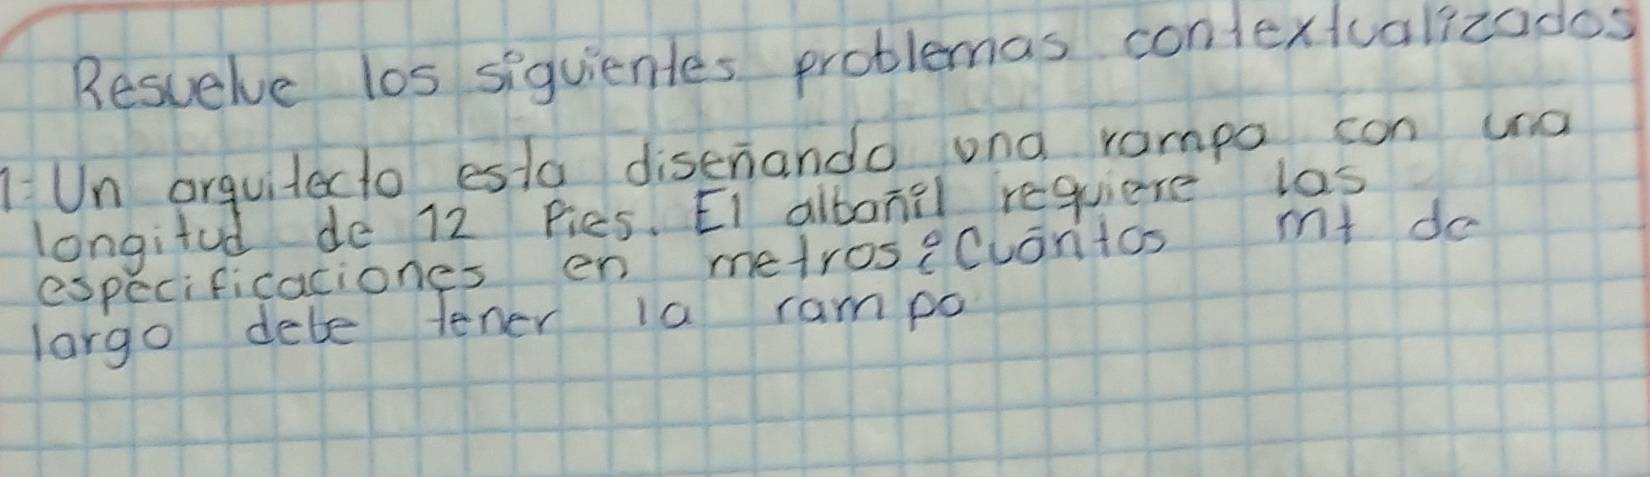 Resuelve los siguientes problemas contextualizados
1= Un arquitecto esta diseñando una rampa con una
longitud de 12 Pies. El albañil requiere las
especificaciones en metros ¿Cuántos mt de
largo debe tener la rampa